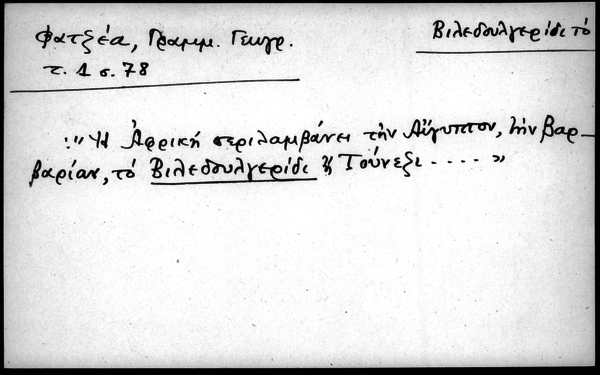 Φατζέα, Γραμμ. Γεωγρ.
τ. 1 σ. 78
Βιλεδουλγερίδι τό
:"Ἡ Ἀφρική περιλαμβάνει τήν Αἴγυπτον, τήν Βαρ-
βαρίαν, τό Βιλεδουλγερίδι ἤ Τούνεζι . . . . "